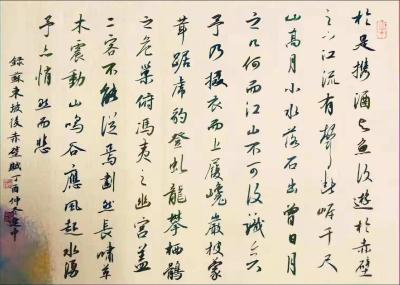 於是携酒与魚復遊於赤壁
之下江流有聲斷岸千尺
山高月小水落石出曾日月
之几何而江山不可復識矣
予乃攝衣而上履巉巖披蒙
茸踞虎豹登虬龍攀栖鶻
之危巢俯馮夷之幽宮蓋
二客不能從焉劃然長嘯草
木震動山鳴谷應風起水湧
予亦悄然而悲
録蘇東坡後赤壁賦丁酉仲